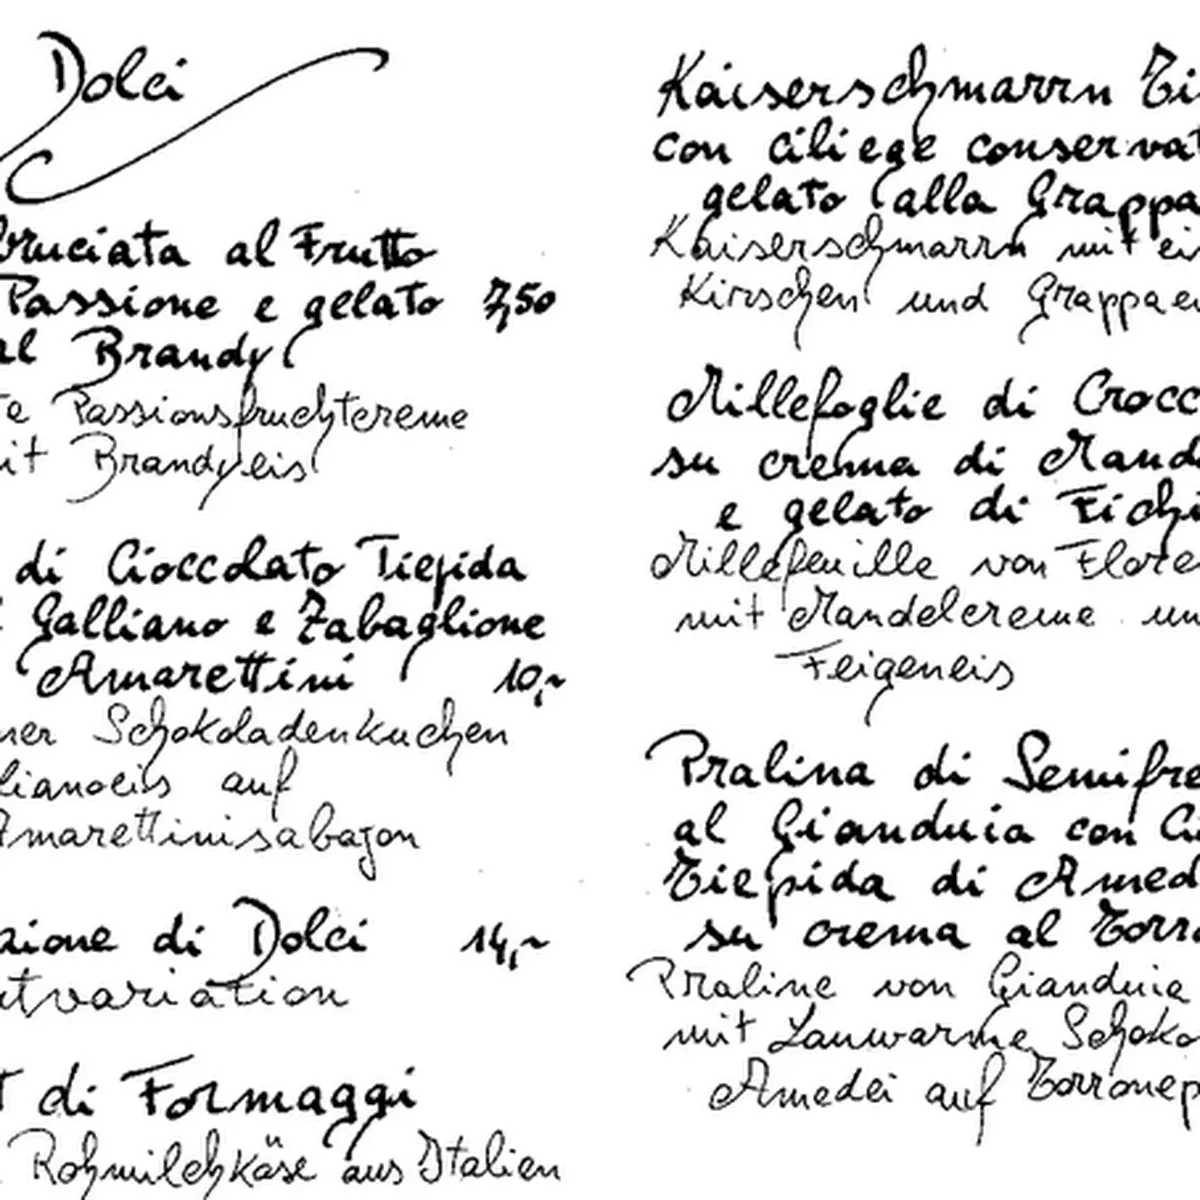 Dolci
bruciata al Frutto
Passione e gelato 7,50
al Brandy
te Passionsfruchtcreme
it Brandyeis
di Cioccolato Tiepida
Galliano e Zabaglione
Amarettini 10,~
ner Schokoladenkuchen
lianoeis auf
Amarettinisabajon
zione di Dolci 14,~
tvariation
di Formaggi
Rohmilchkäse aus Italien
Kaiserschmarrn Ti
con ciliege conservat
gelato alla Grappa
Kaiserschmarrn mit ei
Kirschen und Grappaei
Millefoglie di Crocc
su crema di Mand
e gelato di Fichi
Millefeuille von Flore
mit Mandelcreme un
Feigeneis
Pralina di Semifre
al Gianduia con
Tiepida di Amed
su crema al Torr
Praline von Gianduia
mit Lauwarme Schoko
Amedei auf Torronep